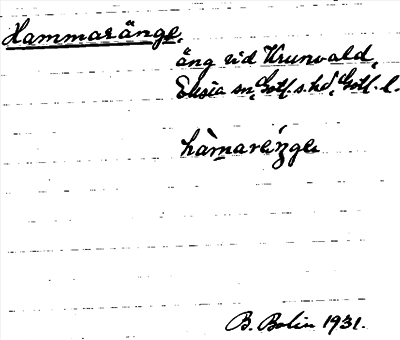 Hammaränge,
äng vid Krunvald,
Eksta sn, Gotl. s. hd, Gotl. l.
hàmaréŋge
B. Bolin 1931.